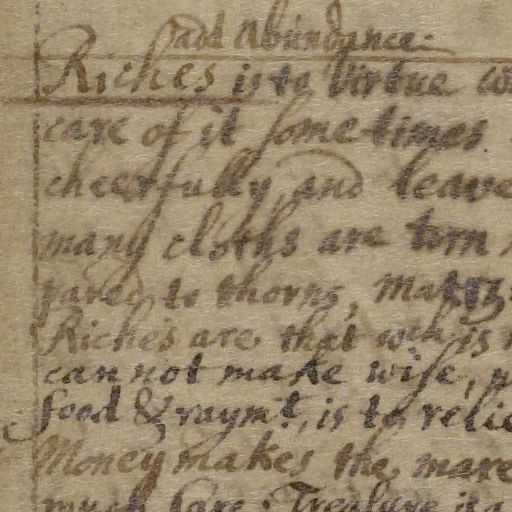 add Abundance.
Riches is to Virtue
care of it some times
cheerfully and leave
many cloths are torn
pared to thorns, Mat 13
Riches are that wch is
can not make wise,
food & raymt, is to relie
Money makes the mare
much care. Treasure is a